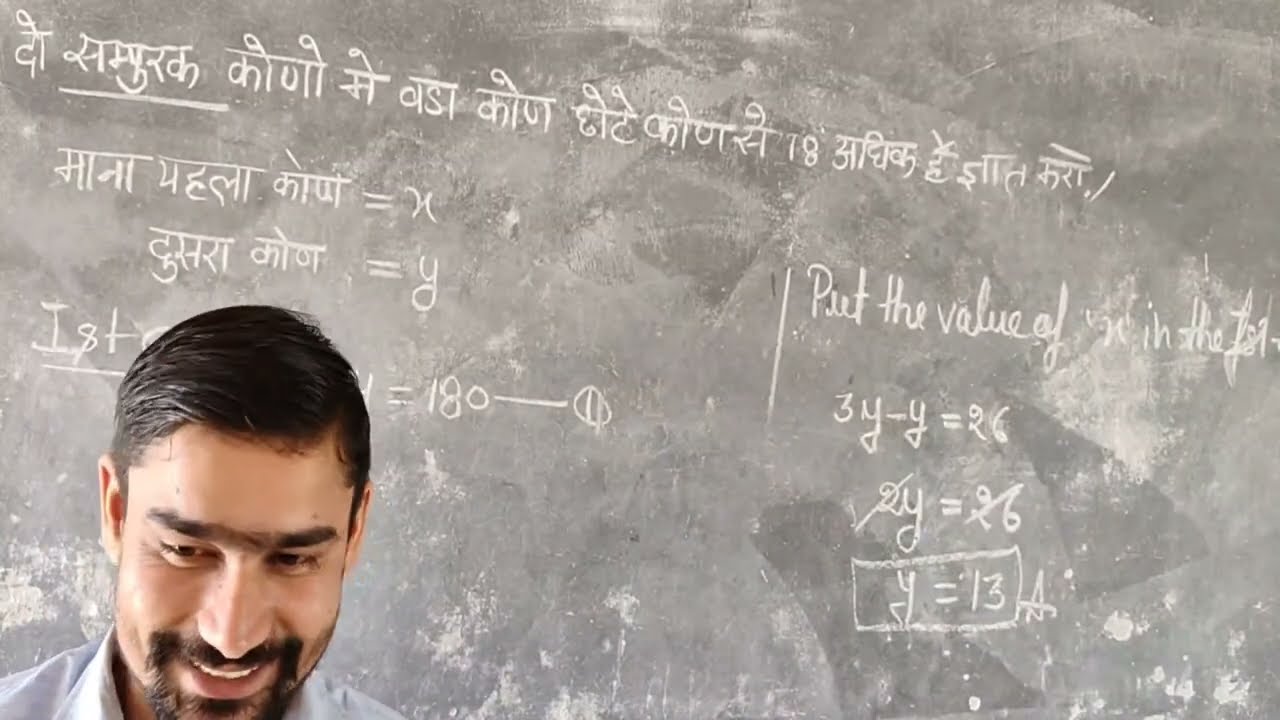 दो सम्पुरक कोणो मे वडा कोण छोटे कोण से 18° अधिक हैं ज्ञात करो./
माना पहला कोण = x
दुसरा कोण = y
Ist
= 180 — ①
Put the value of 'x' in the Ist
3y-y = 26
2y = 26
y = 13 A